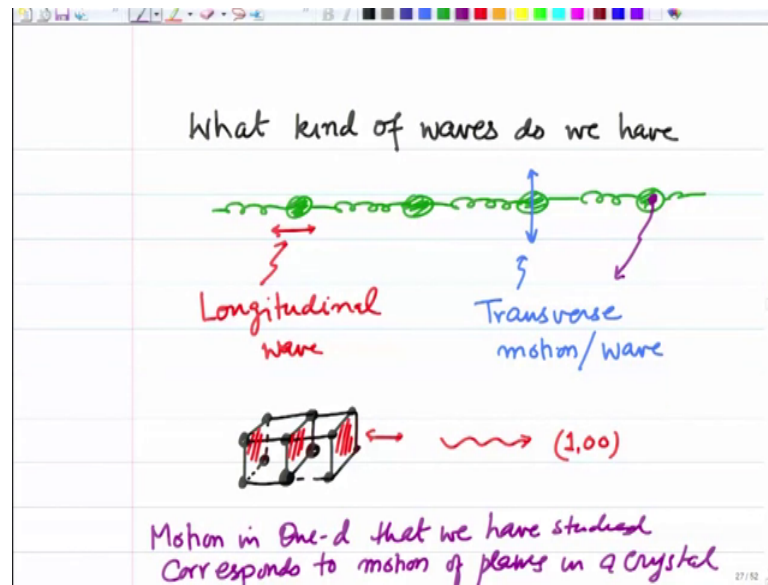 What kind of waves do we have
Longitudinal
wave
Transverse
motion/wave
(1,00)
Motion in One-d that we have studied
Corresponds to motion of planes in a crystal
27/52